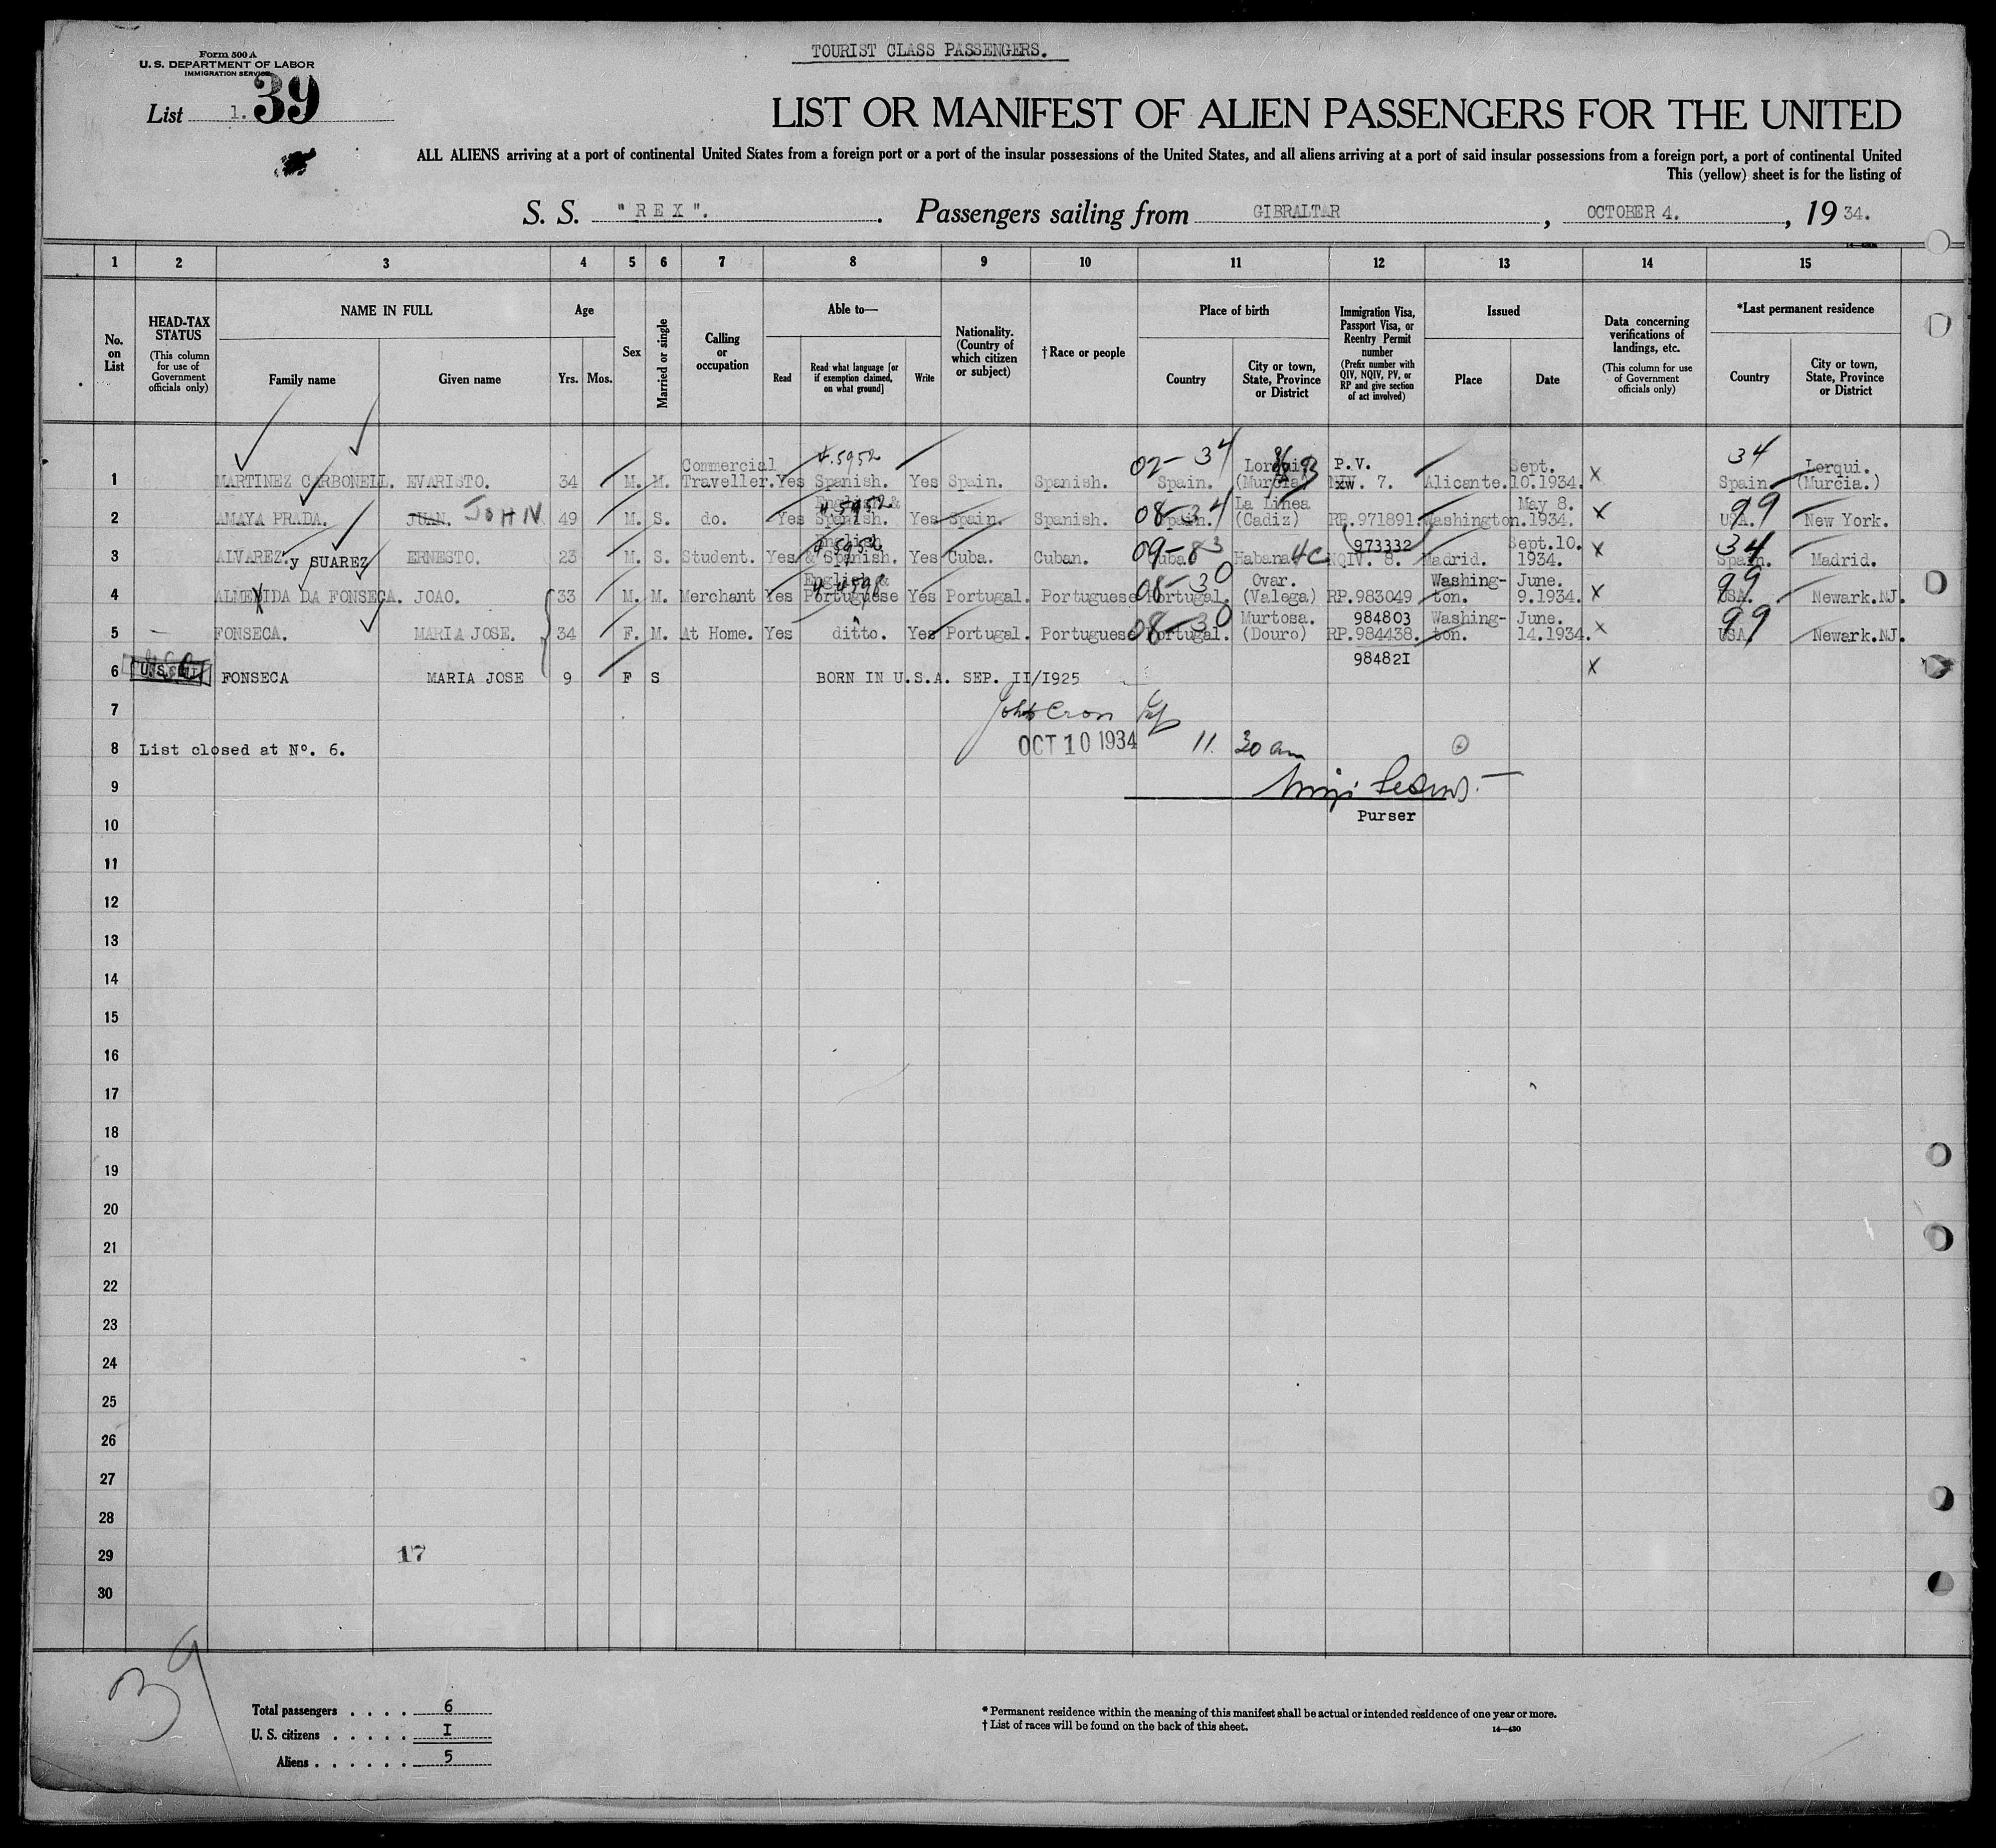 TOURIST CLASS PASSENGERS.
Form 500 A
U. S. DEPARTMENT OF LABOR
IMMIGRATION SERVICE
List 1. 39
LIST OR MANIFEST OF ALIEN PASSENGERS FOR THE UNITED
ALL ALIENS arriving at a port of continental United States from a foreign port or a port of the insular possessions of the United States, and all aliens arriving at a port of said insular possessions from a foreign port, a port of continental United
This (yellow) sheet is for the listing of
S. S. "REX". Passengers sailing from GIBRALTAR, OCTOBER 4., 1934.
1 2 3 4 5 6 7 8 9 10 11 12 13 14 15
No. on List
HEAD-TAX STATUS
(This column for use of Government officials only)
NAME IN FULL
Family name Given name
Age
Yrs. Mos.
Sex
Married or single
Calling or occupation
Able to—
Read
Read what language [or if exemption claimed, on what ground]
Write
Nationality. (Country of which citizen or subject)
†Race or people
Place of birth
Country
City or town, State, Province or District
Immigration Visa, Passport Visa, or Reentry Permit number
(Prefix number with QIV, NQIV, PV, or RP and give section of act involved)
Issued
Place Date
Data concerning verifications of landings, etc.
(This column for use of Government officials only)
*Last permanent residence
Country
City or town, State, Province or District
1 MARTINEZ CARBONELL. EVARISTO. 34 M. M. Commercial Traveller. Yes Spanish. Yes Spain. Spanish. 02-34 Spain. Lorqui. (Murcia) P.V. 7. Alicante. Sept. 10.1934. X 34 Spain. Lorqui. (Murcia.)
2 AMAYA PRADA. JUAN. JOHN 49 M. S. do. Yes English & Spanish. Yes Spain. Spanish. 08-34 Spain. La Linea (Cadiz) RP.971891. Washington. May 8. 1934. X 99 USA. New York.
3 ALVAREZ y SUAREZ ERNESTO. 23 M. S. Student. Yes English & Spanish. Yes Cuba. Cuban. 09-83 Cuba. Habana 973332 NQIV. 8. Madrid. Sept.10. 1934. X 34 Spain. Madrid.
4 ALMEIDA DA FONSECA. JOAO. 33 M. M. Merchant Yes English & Portuguese Yes Portugal. Portuguese 08-30 Portugal. Ovar. (Valega) RP.983049 Washington. June. 9.1934. X 99 USA. Newark.NJ.
5 FONSECA. MARIA JOSE. 34 F. M. At Home. Yes ditto. Yes Portugal. Portuguese 08-30 Portugal. Murtosa. (Douro) 984803 RP.984438. Washington. June. 14.1934. X 99 USA. Newark.NJ.
6 FONSECA MARIA JOSE 9 F S BORN IN U.S.A. SEP. II/I925 98482I X
7
OCT 10 1934 11. 30 am
8 List closed at Nº. 6.
9
Purser
10
11
12
13
14
15
16
17
18
19
20
21
22
23
24
25
26
27
28
29 17
30
39
Total passengers . . . . 6
U. S. citizens . . . . . I
Aliens . . . . . . 5
* Permanent residence within the meaning of this manifest shall be actual or intended residence of one year or more.
† List of races will be found on the back of this sheet.
14—430